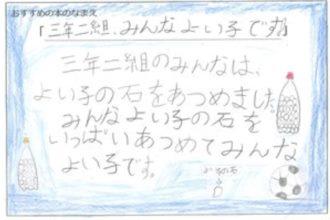 おすすめの本のなまえ
「三年二組、みんなよい子です!」
三年二組のみんなは、
よい子の石をあつめました。
みんなよい子の石を
いっぱいあつめてみんな
よい子です。
よい子の石